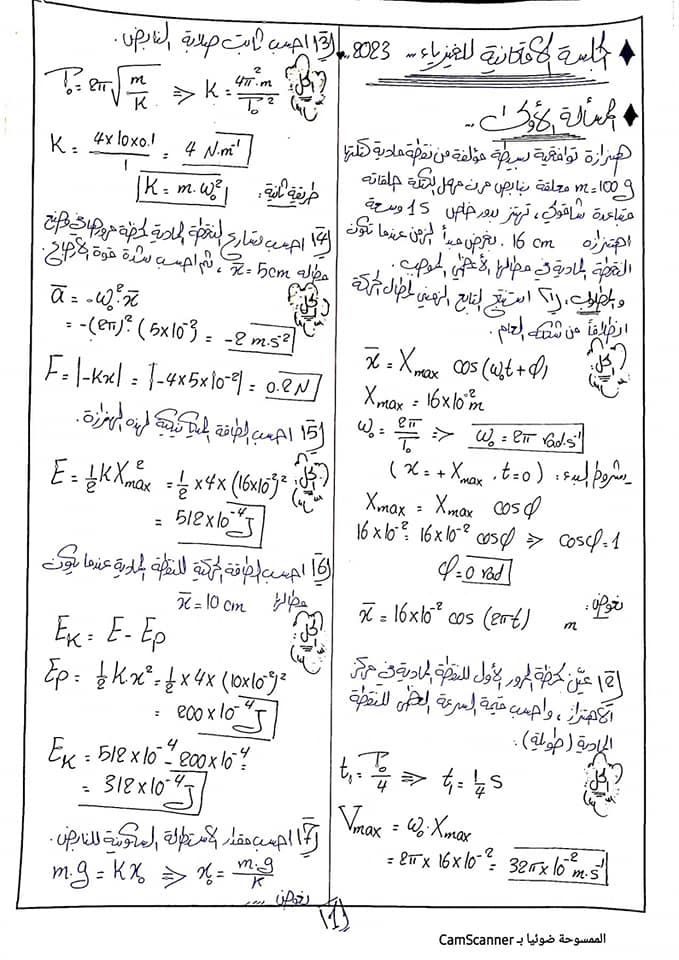 الجلسة الامتحانية للفيزياء .. 2023..
المسألة الأولى ..
هزازة توافقية بسيطة مؤلفة من نقطة مادية كتلتها
m=100 g معلقة بنابض مرن مهمل الكتلة حلقاته
متباعدة شاقولي، تهتز بدور خاص 1 s وسعة
اهتزازه 16 cm. بفرض مبدأ الزمن عندما تكون
النقطة المادية في مطالها الأعظمي الموجب.
والمطلوب: 1) استنتج التابع الزمني لمطال الحركة
انطلاقاً من شكله العام.
الحل:
x̄ = Xmax cos(ω₀t+φ)
Xmax = 16×10⁻² m
ω₀ = 2π/T₀ ⇒ ω₀ = 2π rad.s⁻¹
شروط البدء: (x = +Xmax , t=0)
Xmax = Xmax cosφ
16×10⁻² = 16×10⁻² cosφ ⇒ cosφ=1
φ=0 rad
نعوض:
x̄ = 16×10⁻² cos (2πt) m
2) عيّن لحظة المرور الأول للنقطة المادية في مركز
الاهتزاز، واحسب قيمة السرعة العظمى للنقطة
المادية (طويلة).
الحل:
t₁ = T₀/4 ⇒ t₁ = 1/4 s
Vmax = ω₀.Xmax
= 2π × 16×10⁻² = 32π×10⁻² m.s⁻¹
3) احسب ثابت صلابة النابض.
الحل:
T₀ = 2π√(m/K) ⇒ K = 4π².m/T₀²
K = 4×10×0.1/1 = 4 N.m⁻¹
طريقة ثانية: K = m.ω₀²
4) احسب تسارع النقطة المادية لحظة مرورها في موضع
مطاله x̄ = 5cm ، ثم احسب شدة قوة الإرجاع.
الحل:
ā = -ω₀².x̄
= -(2π)².(5×10⁻²) = -2 m.s⁻²
F = |-Kx| = |-4×5×10⁻²| = 0.2 N
5) احسب الطاقة الميكانيكية لهذه الهزازة.
الحل:
E = ½KXmax² = ½×4×(16×10⁻²)²
= 512×10⁻⁴ J
6) احسب الطاقة الحركية للنقطة المادية عندما يكون
مطالها x̄ = 10 cm
الحل:
EK = E - Ep
Ep = ½K.x² = ½×4×(10×10⁻²)²
= 200×10⁻⁴ J
EK = 512×10⁻⁴ - 200×10⁻⁴
= 312×10⁻⁴ J
7) احسب مقدار الاستطالة السكونية للنابض.
m.g = Kx₀ ⇒ x₀ = m.g/K
نعوض ....
(1)
الممسوحة ضوئيا بـ CamScanner